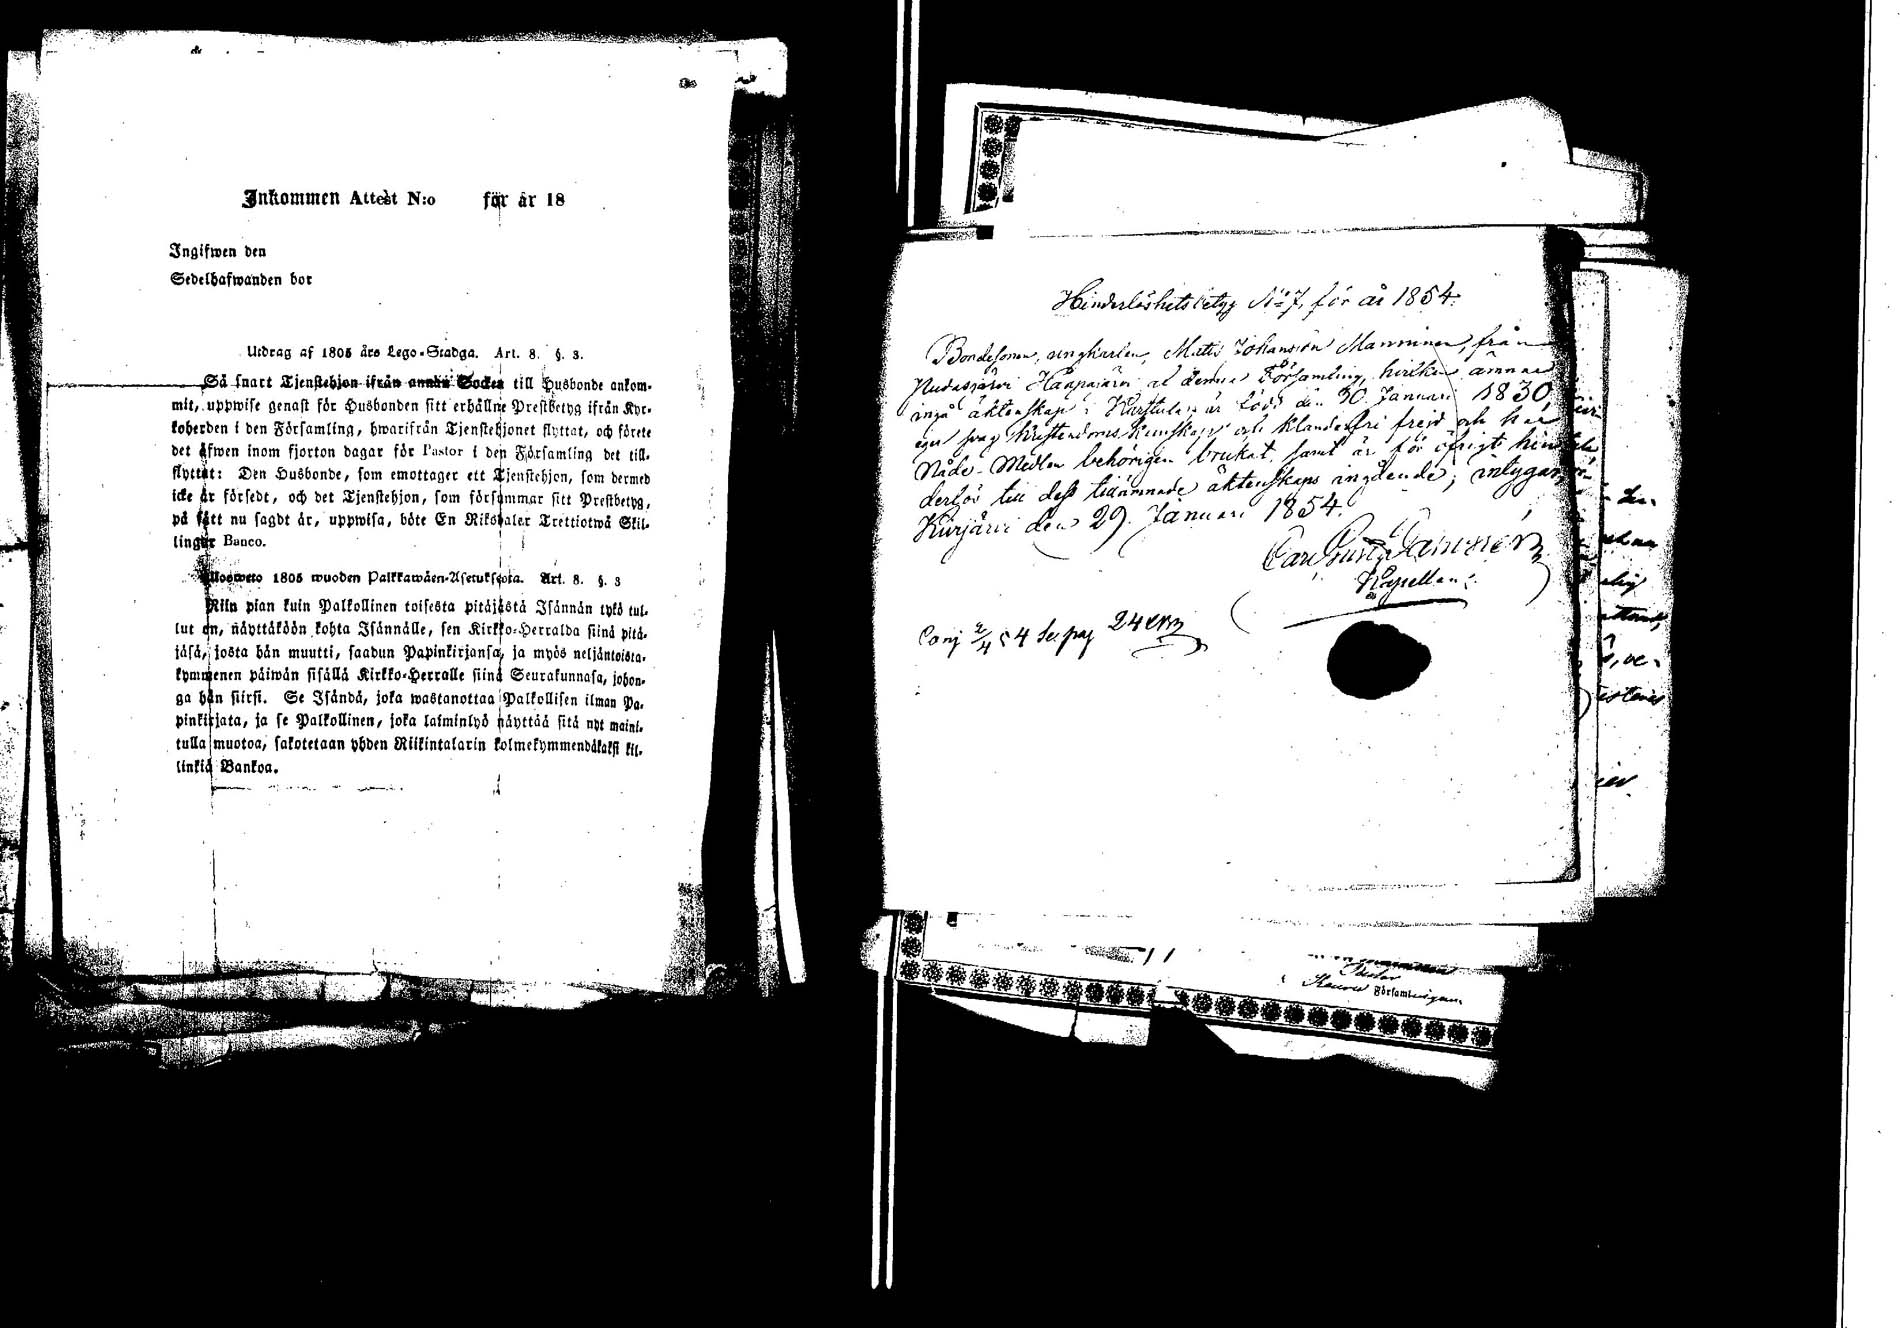 Inkommen Attest N:o för år 18
Ingifwen den
Sedelhafwanden bor
Utdrag af 1805 års Lego-Stadga. Art. 8. §. 3.
Så snart Tjenstehjon ifrån annan Socken till Husbonde ankom-
mit, uppwise genast för Husbonden sitt erhållne Prestbetyg ifrån Kyr-
koherden i den Församling, hwarifrån Tjenstehjonet flyttat, och förete
det äfwen inom fjorton dagar för Pastor i den Församling det till-
flyttat: Den Husbonde, som emottager ett Tjenstehjon, som dermed
icke är försedt, och det Tjenstehjon, som försummar sitt Prestbetyg,
på sätt nu sagdt är, uppwisa, böte En Riksdaler Trettiotwå Skil-
lingar Banco.
Ulosweto 1805 wuoden Palkkawäen-Asetuksesta. Art. 8. §. 3
Niin pian kuin Palkollinen toisesta pitäjästä Isännän tykö tul-
lut on, näyttäköön kohta Isännälle, sen Kirkko-Herralda siinä pitä-
jäsä, josta hän muutti, saadun Papinkirjansa, ja myös neljäntoista-
kymmenen päiwän sisällä Kirkko-Herralle siinä Seurakunnasa, johon-
ga hän siirsi. Se Isändä, joka wastanottaa Palkollisen ilman Pa-
pinkirjata, ja se Palkollinen, joka laiminlyö näyttää sitä nyt maini-
tulla muotoa, sakotetaan yhden Riikintalarin kolmekymmendäkaksi kil-
linkiä Bankoa.
Hinderlöshetsbetyg No 7, för år 1854.
Bondesonen, ungkarlen, Matts Johansson Manninen, från
Haapajärvi af denna Församling, hvilken ämnar
ingå äktenskap i Karstula, är född den 30 Januari 1830,
eger svag Kristendoms Kunskap och klanderfri frejd och har
Nåde-Medlen behörigen brukat, samt är för öfrigt
till dess tillämnade äktenskaps ingående; intygar
Kivijärvi den 29 Januari 1854.
Carl Gustaf
Kapellan.
24
Pastor
Församlingen